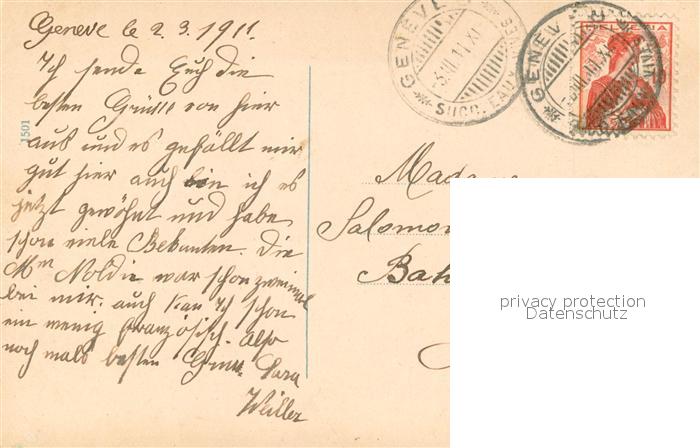 Geneve le 2. 3. 1911.
Ich sende Euch die
besten Grüsse von hier
aus und es gefällt mir
gut hier auch bin ich es
jetzt gewöhnt und habe
schon viele Bekanten. Die
Mm Noldie war schon zweimal
bei mir. auch kan Ich schon
ein wenig französisch. Also
noch mals besten Gruss. Sara
Weiller
1501
GENEVE
SUCC. EAUX-VIVES
GENEVE
HELVETIA
Madame
Salomon
Bah
privacy protection
Datenschutz